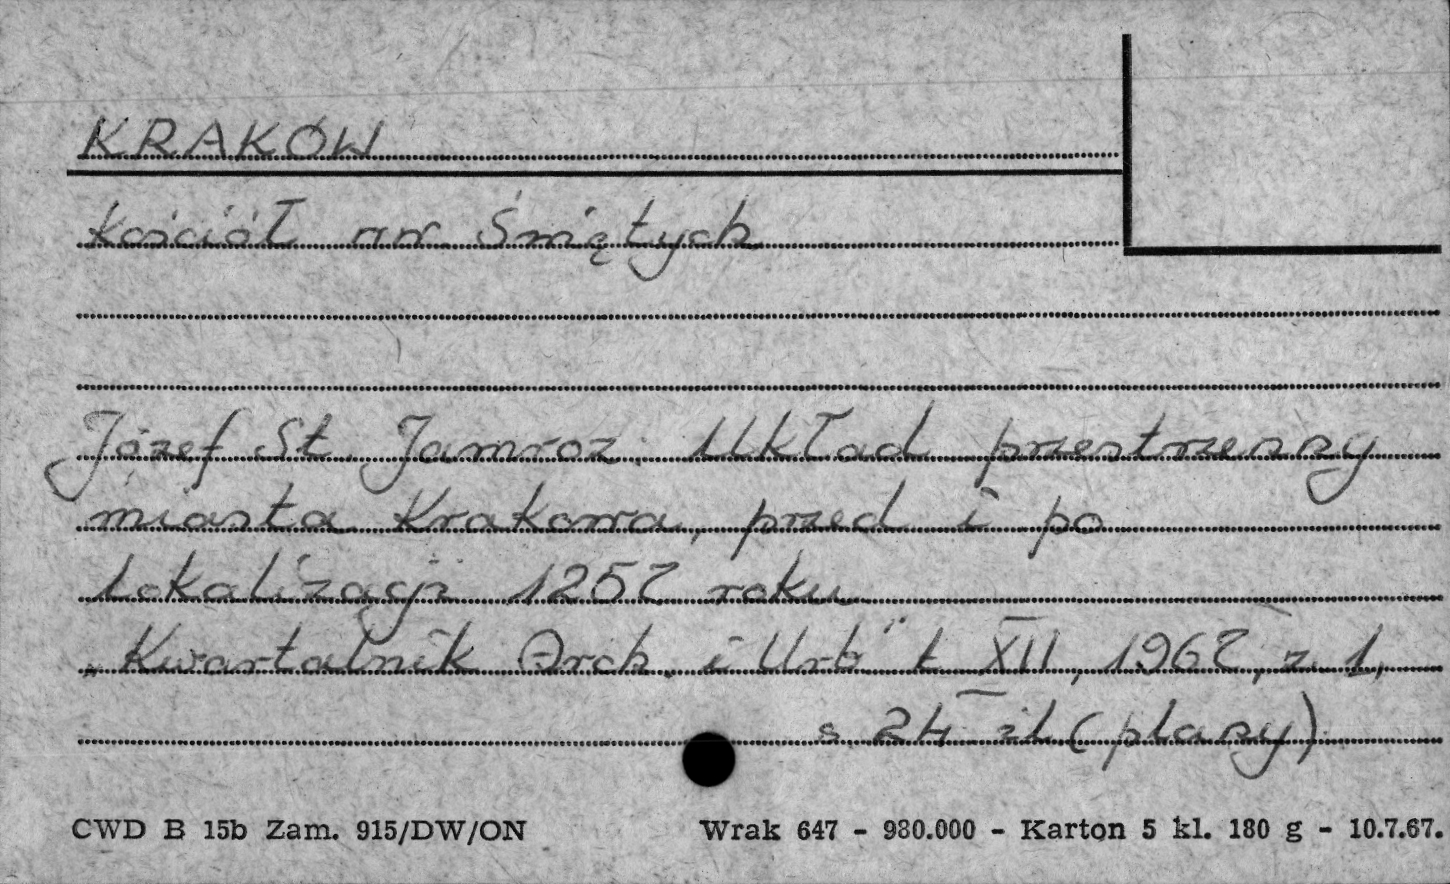 KRAKÓW
kościół WW. Świętych
Józef St. Jamroz: Układ przestrzenny
miasta Krakowa, przed i po
lokalizacji 1257 roku
„Kwartalnik Arch. i Urb" t XII, 1967, z 1,
s. 24 il (plany)
CWD B 15b Zam. 915/DW/ON
Wrak 647 - 980.000 - Karton 5 kl. 180 g - 10.7.67.